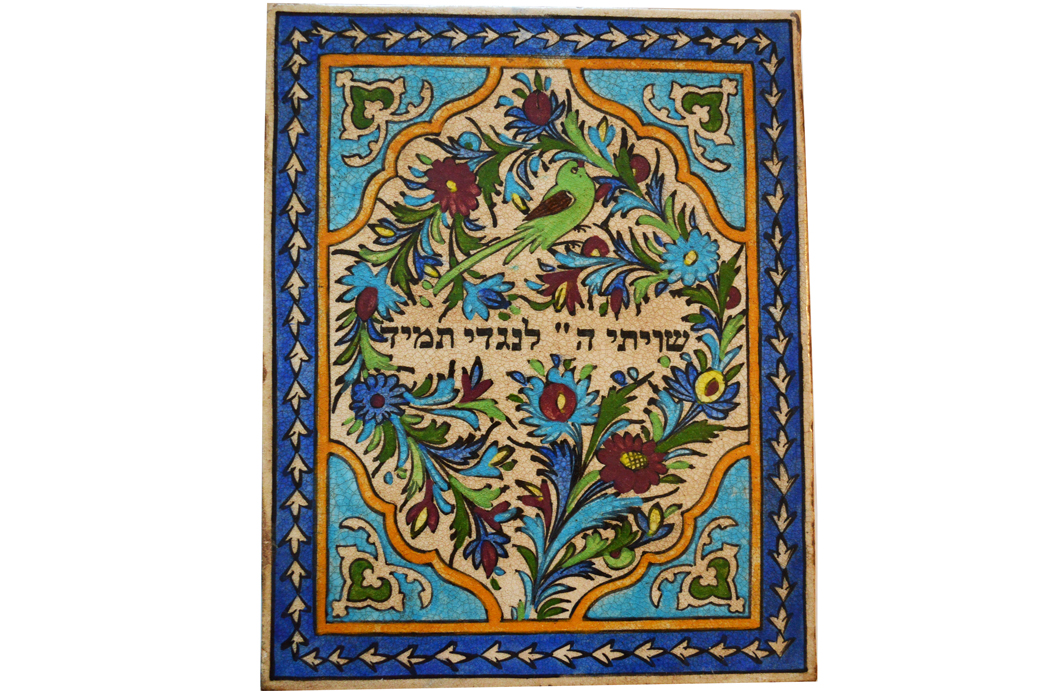 שויתי ה" לנגדי תמיד